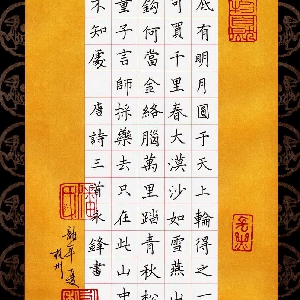 底有明月圓于天上輪得之一
可買千里春大漠沙如雪燕山
鈎何當金絡腦萬里踏青秋松
童子言師採藥去只在此山中
不知處 唐詩三首 鋒書
龍年夏
杭州